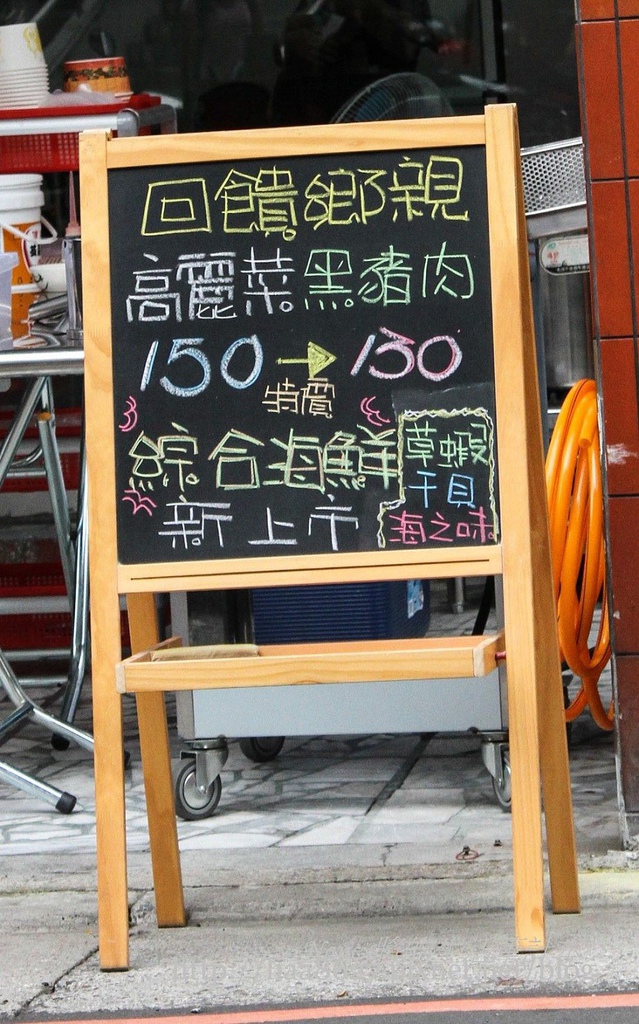 回饋鄉親
高麗菜黑豬肉
150→130
特價
綜合海鮮
新上市
草蝦
干貝
海之味